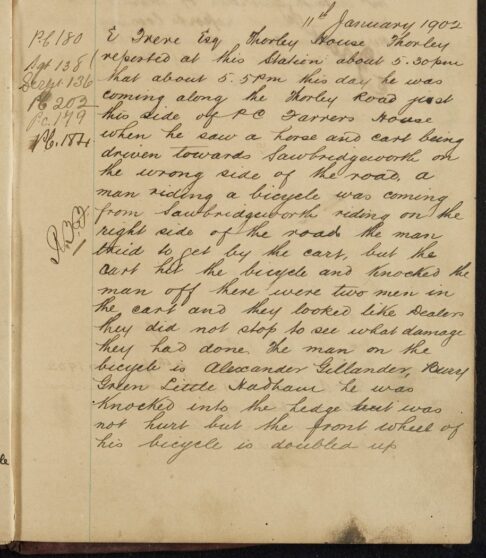 11th January 1902
Pc 180
Sgt 138
Sergt 136
Pc 202
Pc. 179
Pc. 184
E Frere Esq Thorley House Thorley
reported at this Station about 5.30pm
that about 5.5pm this day he was
coming along the Thorley Road just
this side of P.C Farrers House
when he saw a horse and cart being
driven towards Sawbridgeworth on
the wrong side of the road, a
man riding a bicycle was coming
from Sawbridgeworth riding on the
right side of the road the man
tried to get by the cart, but the
cart hit the bicycle and knocked the
man off there were two men in
the cart and they looked like Dealers
they did not stop to see what damage
they had done. The man on the
bicycle is Alexander Gillander, Bury
Green Little Hadham he was
knocked into the hedge but was
not hurt but the front wheel of
his bicycle is doubled up